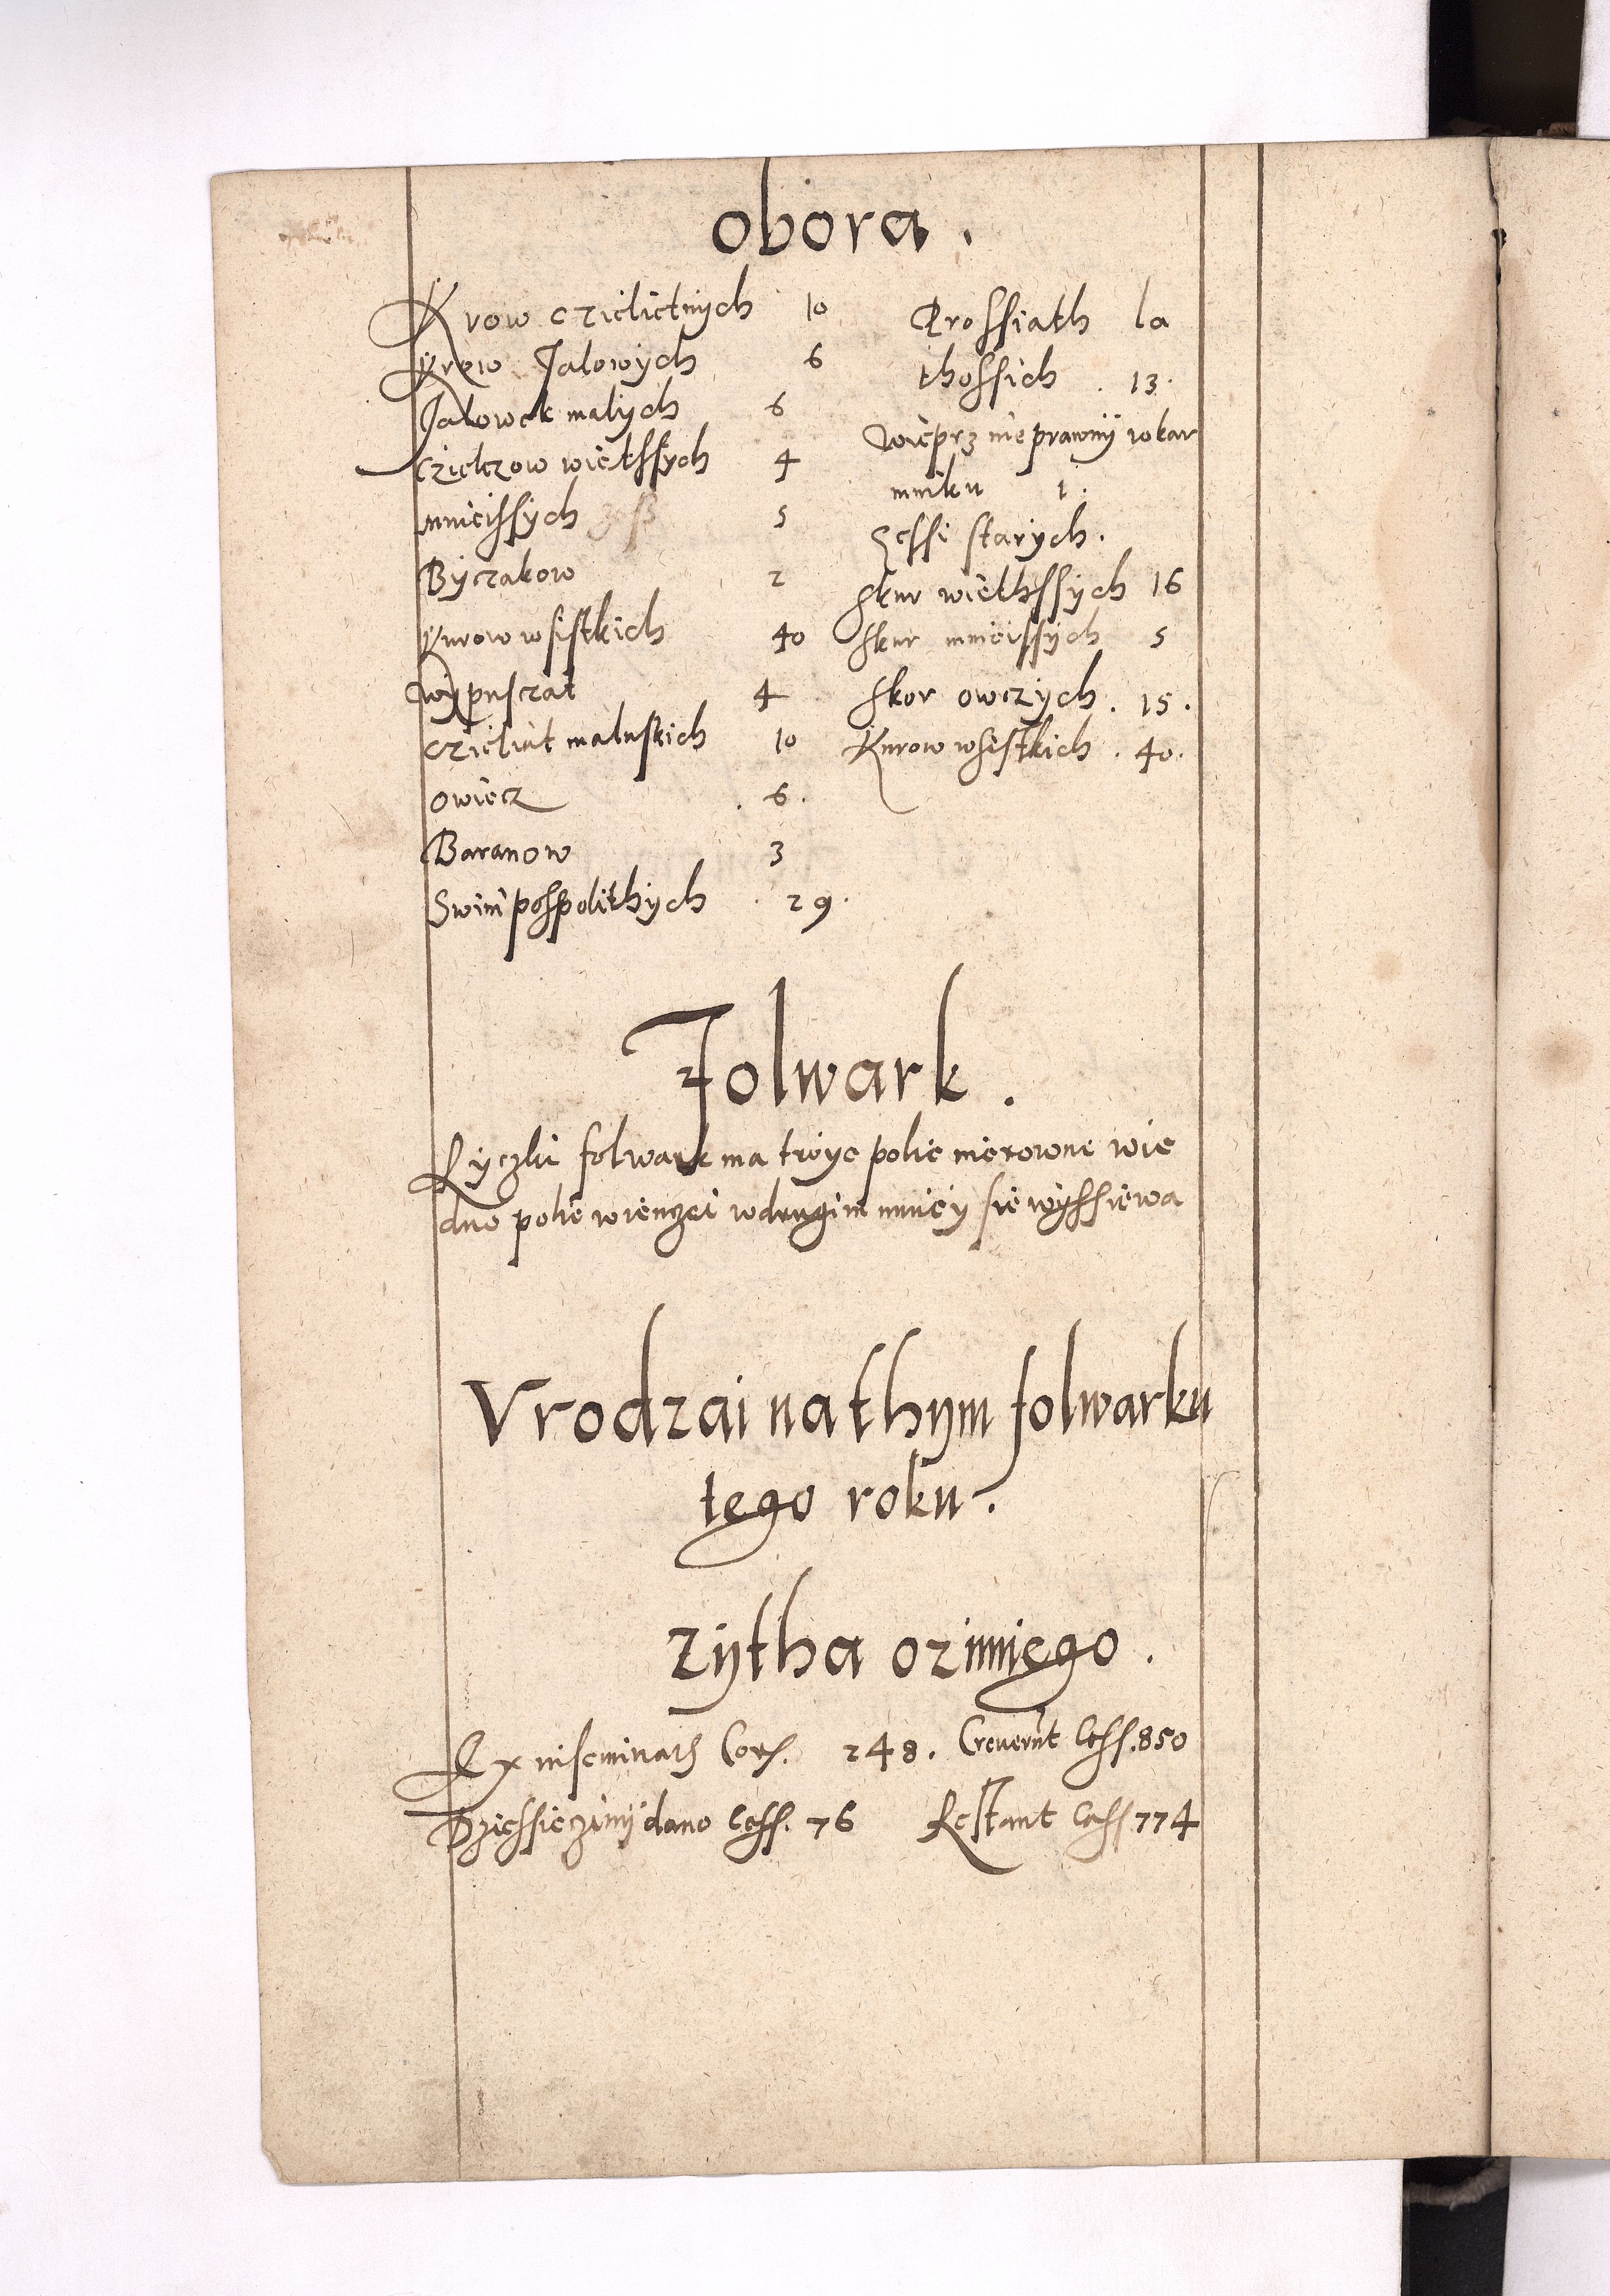 obora.
Krow czielietnych 10
Krow Jalowych 6
Jalowek malych 6
Czielczow wiethssych 4
mnieissych 5
Byczakow 2
Kurow wsistkich 40
wypusczat 4
czieliat maluskich 10
owiecz . 6.
Baranow 3
Swini pospolithych . 29.
Prossiath la
thossich . 13.
wieprz nie prawny w kar
mniku 1.
Gessi starych.
skur wiethssych 16
skur mnieissych 5
skor owczych . 15.
Kurow wsistkich . 40.
Folwark.
folwark ma troye polie nierowne wie
dno polie wienczei w drugim mniey sie wyssiewa
Vrodzai na thym folwarku
tego roku.
Zytha ozimiego.
Ex inseminatis Cor. 248. Creuerunt Cass. 850
Dziessieziny dano Cass. 76 Restant Cass 774